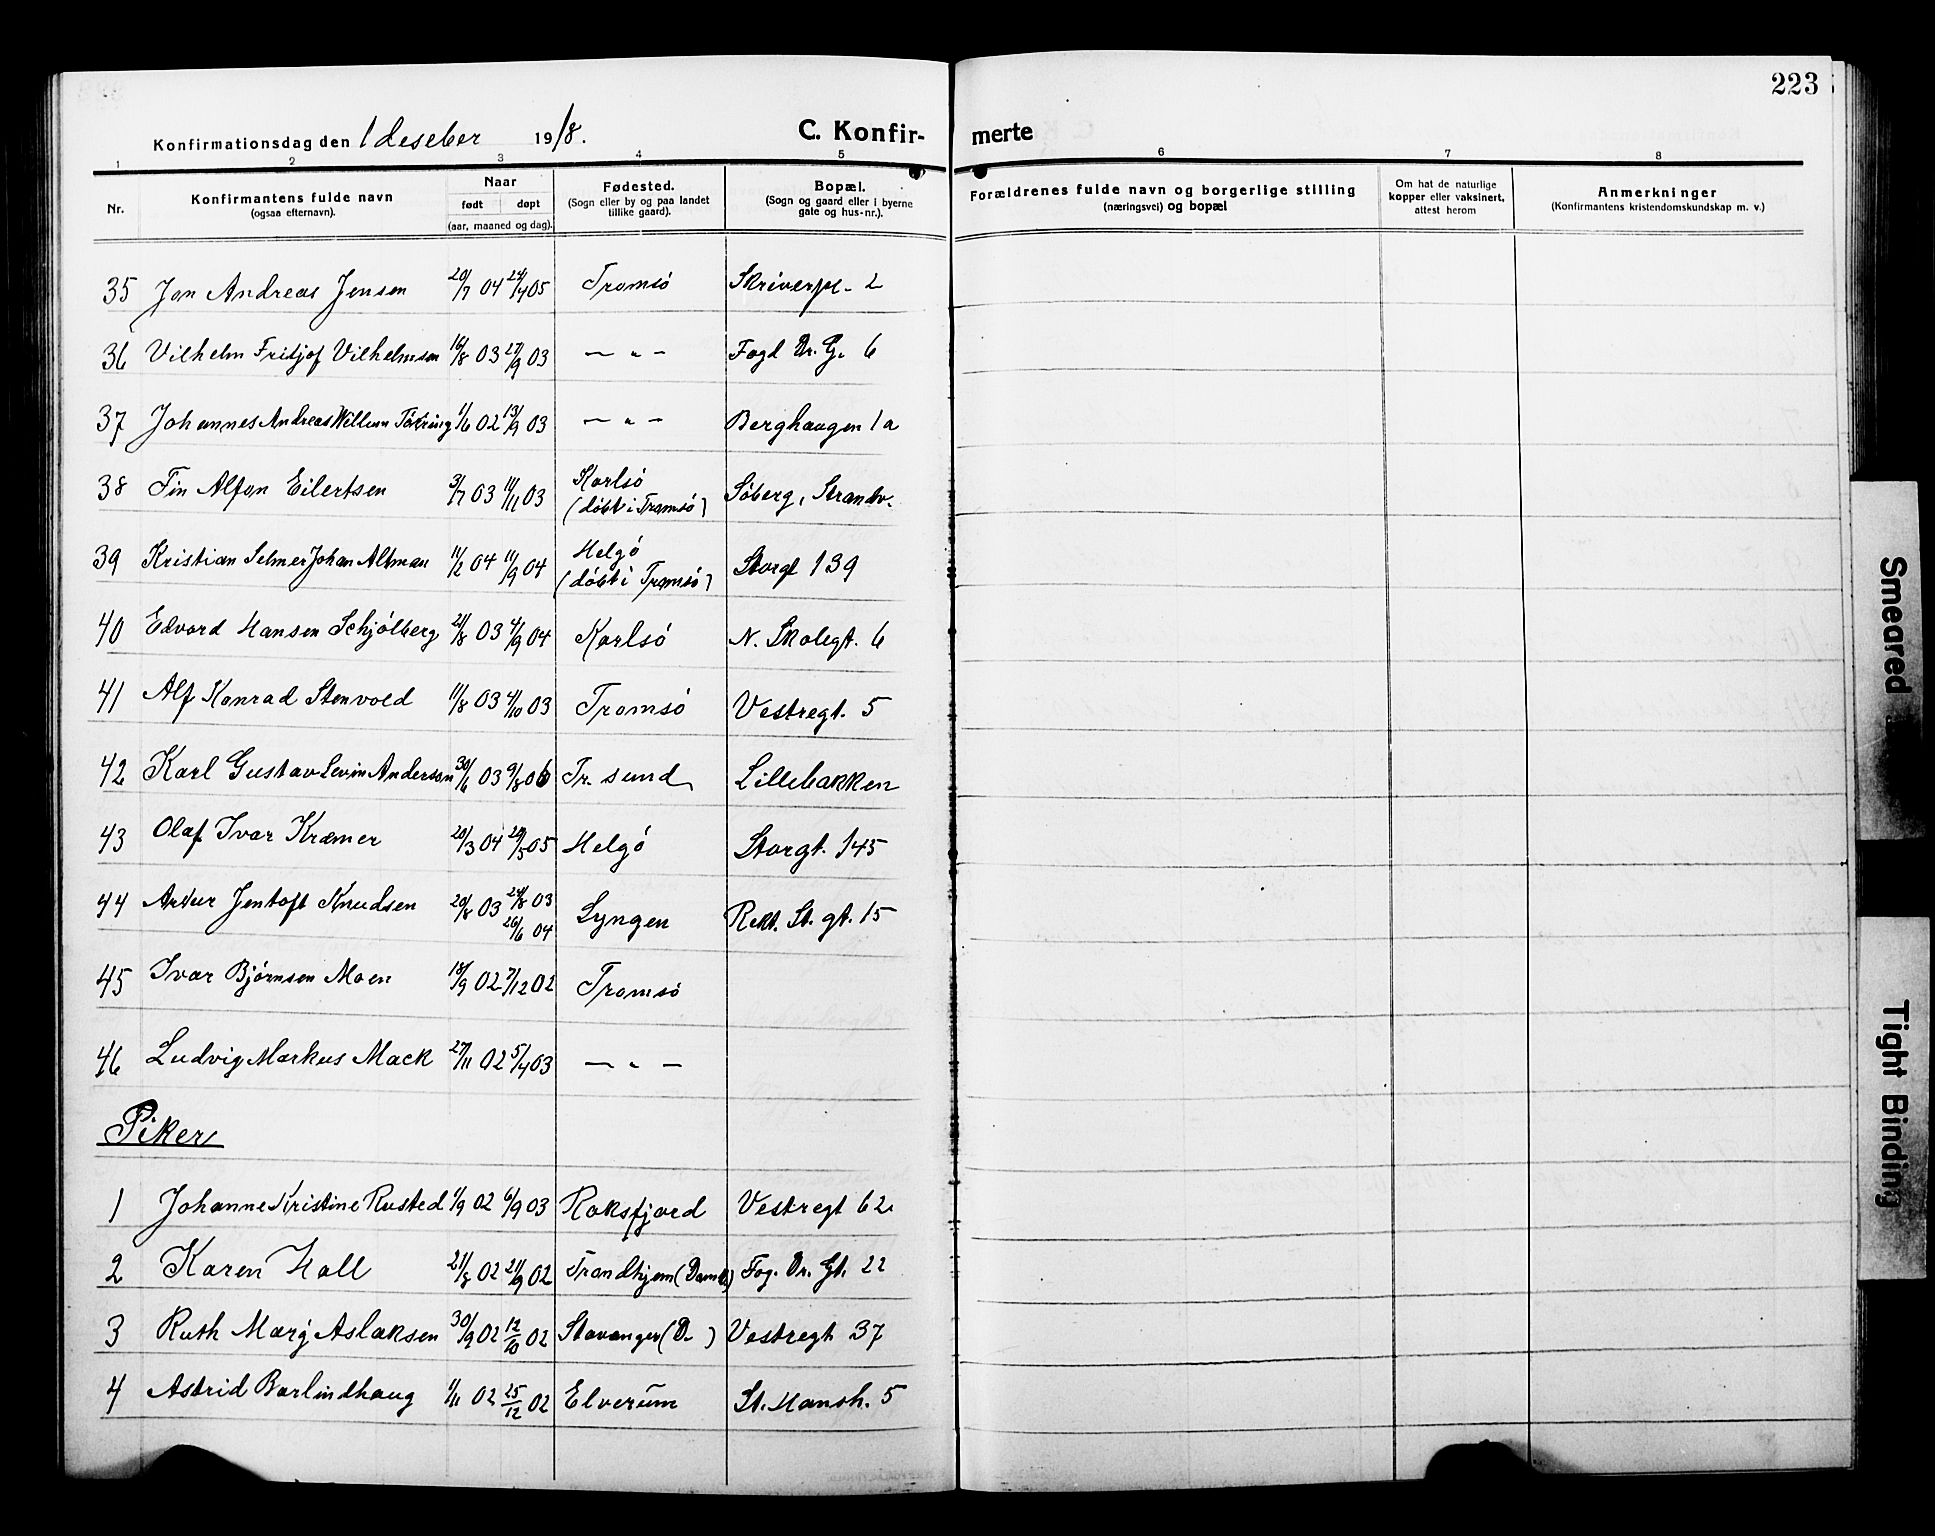 223
Konfirmationsdag den 1 deseber 1918. C. Konfir- merte
1 2 3 4 5 6 7 8
Nr. Konfirmantens fulde navn (ogsaa efternavn). Naar født døpt (aar, maaned og dag). Fødested. (Sogn eller by og paa landet tillike gaard). Bopæl. (Sogn og gaard eller i byerne gate og hus-nr.). Forældrenes fulde navn og borgerlige stilling (næringsvei) og bopæl Om hat de naturlige kopper eller vaksinert, attest herom Anmerkninger (Konfirmantens kristendomskundskap m. v.)
35 Jon Andreas Jensen 20/7 04 24/4 05 Tromsö Skriverpl. 2
36 Vilhelm Fritjof Vilhelmsen 16/8 03 27/9 03 — " — Fogd Dr. G. 6
37 Johannes Andreas Willum 1/6 02 13/9 03 — " — Berghaugen 1a
38 Fin Alfon Eilertsen 3/7 03 11/11 03 Karlsö (döbt i Tromsö) Söberg, Strandv.
39 Kristian Selmer Johan Altman 11/2 04 11/9 04 Helgö (döbt i Tromsö) Storgt 139
40 Edvard Hansen Schjölberg 21/8 03 4/9 04 Karlsö N. Skolegt. 6
41 Alf Konrad Stenvold 11/8 03 4/10 03 Tromsö Vestregt. 5
42 Karl Gustav Levin Anderson 30/6 03 9/8 06 Tr. sund Lillebakken
43 Olaf Ivar Kræmer 20/3 04 /5 05 Helgö Storgt. 145
44 Artur Jentoft Knudsen 20/8 03 24/8 03 26/6 04 Lyngen Rekt. St. gt. 15
45 Ivar Bjørnsen Moen 18/9 02 7/12 02 Tromsö
46 Ludvig Markus Mack 27/11 02 5/4 03 — " —
Piker
1 Johanne Kristine Rusted 1/9 02 6/9 03 Roksfjord Vestregt 62
2 Karen Holl 21/8 02 21/9 02 Trondhjem (Domk.) Fog. Dr. Gt. 22
3 Ruth Marg Aslaksen 30/9 02 12/10 02 Stavanger (D. ) Vestregt 37
4 Astrid Barlindhaug 1/11 02 25/12 02 Elverum St. Hansh. 5
Smeared
Tight Binding